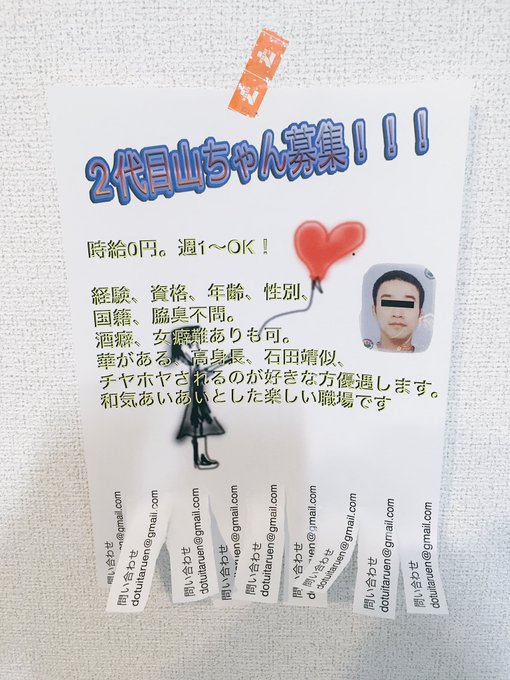 2代目山ちゃん募集!!!
時給0円。週1〜OK!
経験、資格、年齢、性別、
国籍、脇臭不問。
酒癖、女癖難ありも可。
華がある、高身長、石田靖似、
チヤホヤされるのが好きな方優遇します。
和気あいあいとした楽しい職場です
問い合わせ
dotuitaruen@gmail.com
問い合わせ
dotuitaruen@gmail.com
問い合わせ
dotuitaruen@gmail.com
問い合わせ
dotuitaruen@gmail.com
問い合わせ
dotuitaruen@gmail.com
問い合わせ
問い合わせ
dotuitaruen@gmail.com
問い合わせ
dotuitaruen@gmail.com
問い合わせ
dotuitaruen@gmail.com